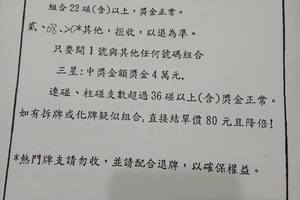 組合 22 碰(含)以上，獎金正常。
貳、08.20*其他，拒收，以退為準。
只要開 1 號與其他任何號碼組合
三星:中獎金額獎金 4 萬元.
連碰、柱碰支數超過 36 碰以上(含)獎金正常。
如有拆牌或化牌疑似組合,直接結單價 80 元且降倍!
*熱門牌支請勿收，並請配合退牌，以確保權益。